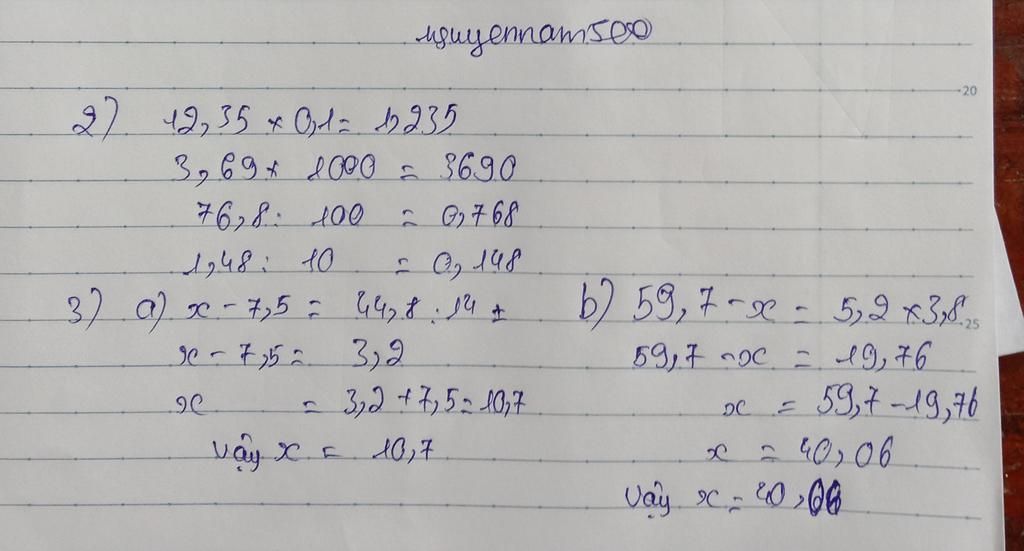 nguyennam500
20
2) 12,35 × 0,1 = 1,235
3,69 × 1000 = 3690
76,8 : 100 = 0,768
1,48 : 10 = 0,148
3) a) x - 7,5 = 44,8 : 14
x - 7,5 = 3,2
x = 3,2 + 7,5 = 10,7
vậy x = 10,7
b) 59,7 - x = 5,2 × 3,8
25
59,7 - x = 19,76
x = 59,7 - 19,76
x = 40,06
vậy x = 40,06